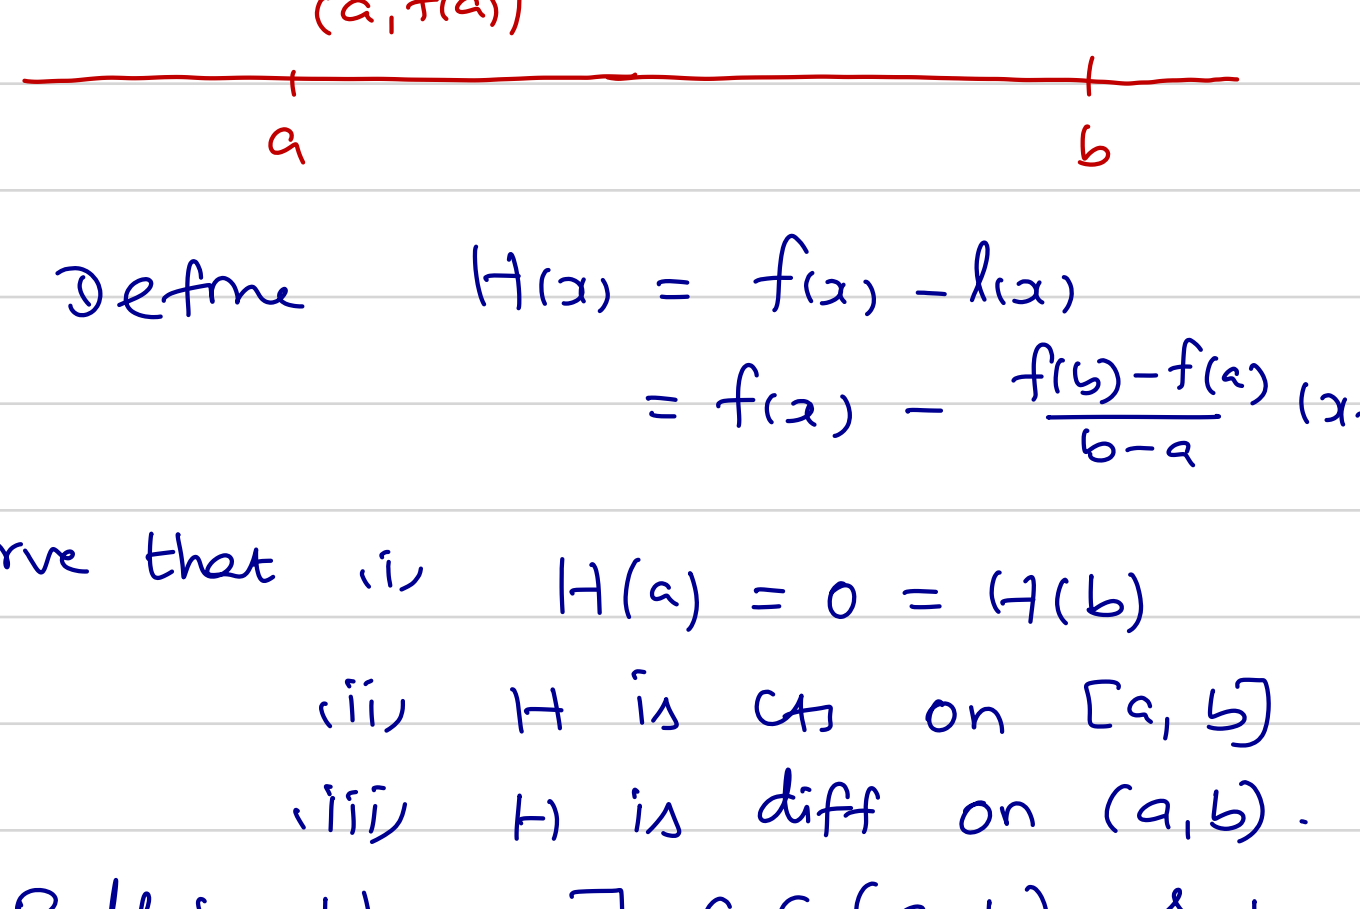 (a, f(a))
a b
Define H(x) = f(x) - l(x)
= f(x) - f(b)-f(a) / b-a (x-
rve that (i) H(a) = 0 = H(b)
(ii) H is cts on [a, b]
(iii) H is diff on (a,b).